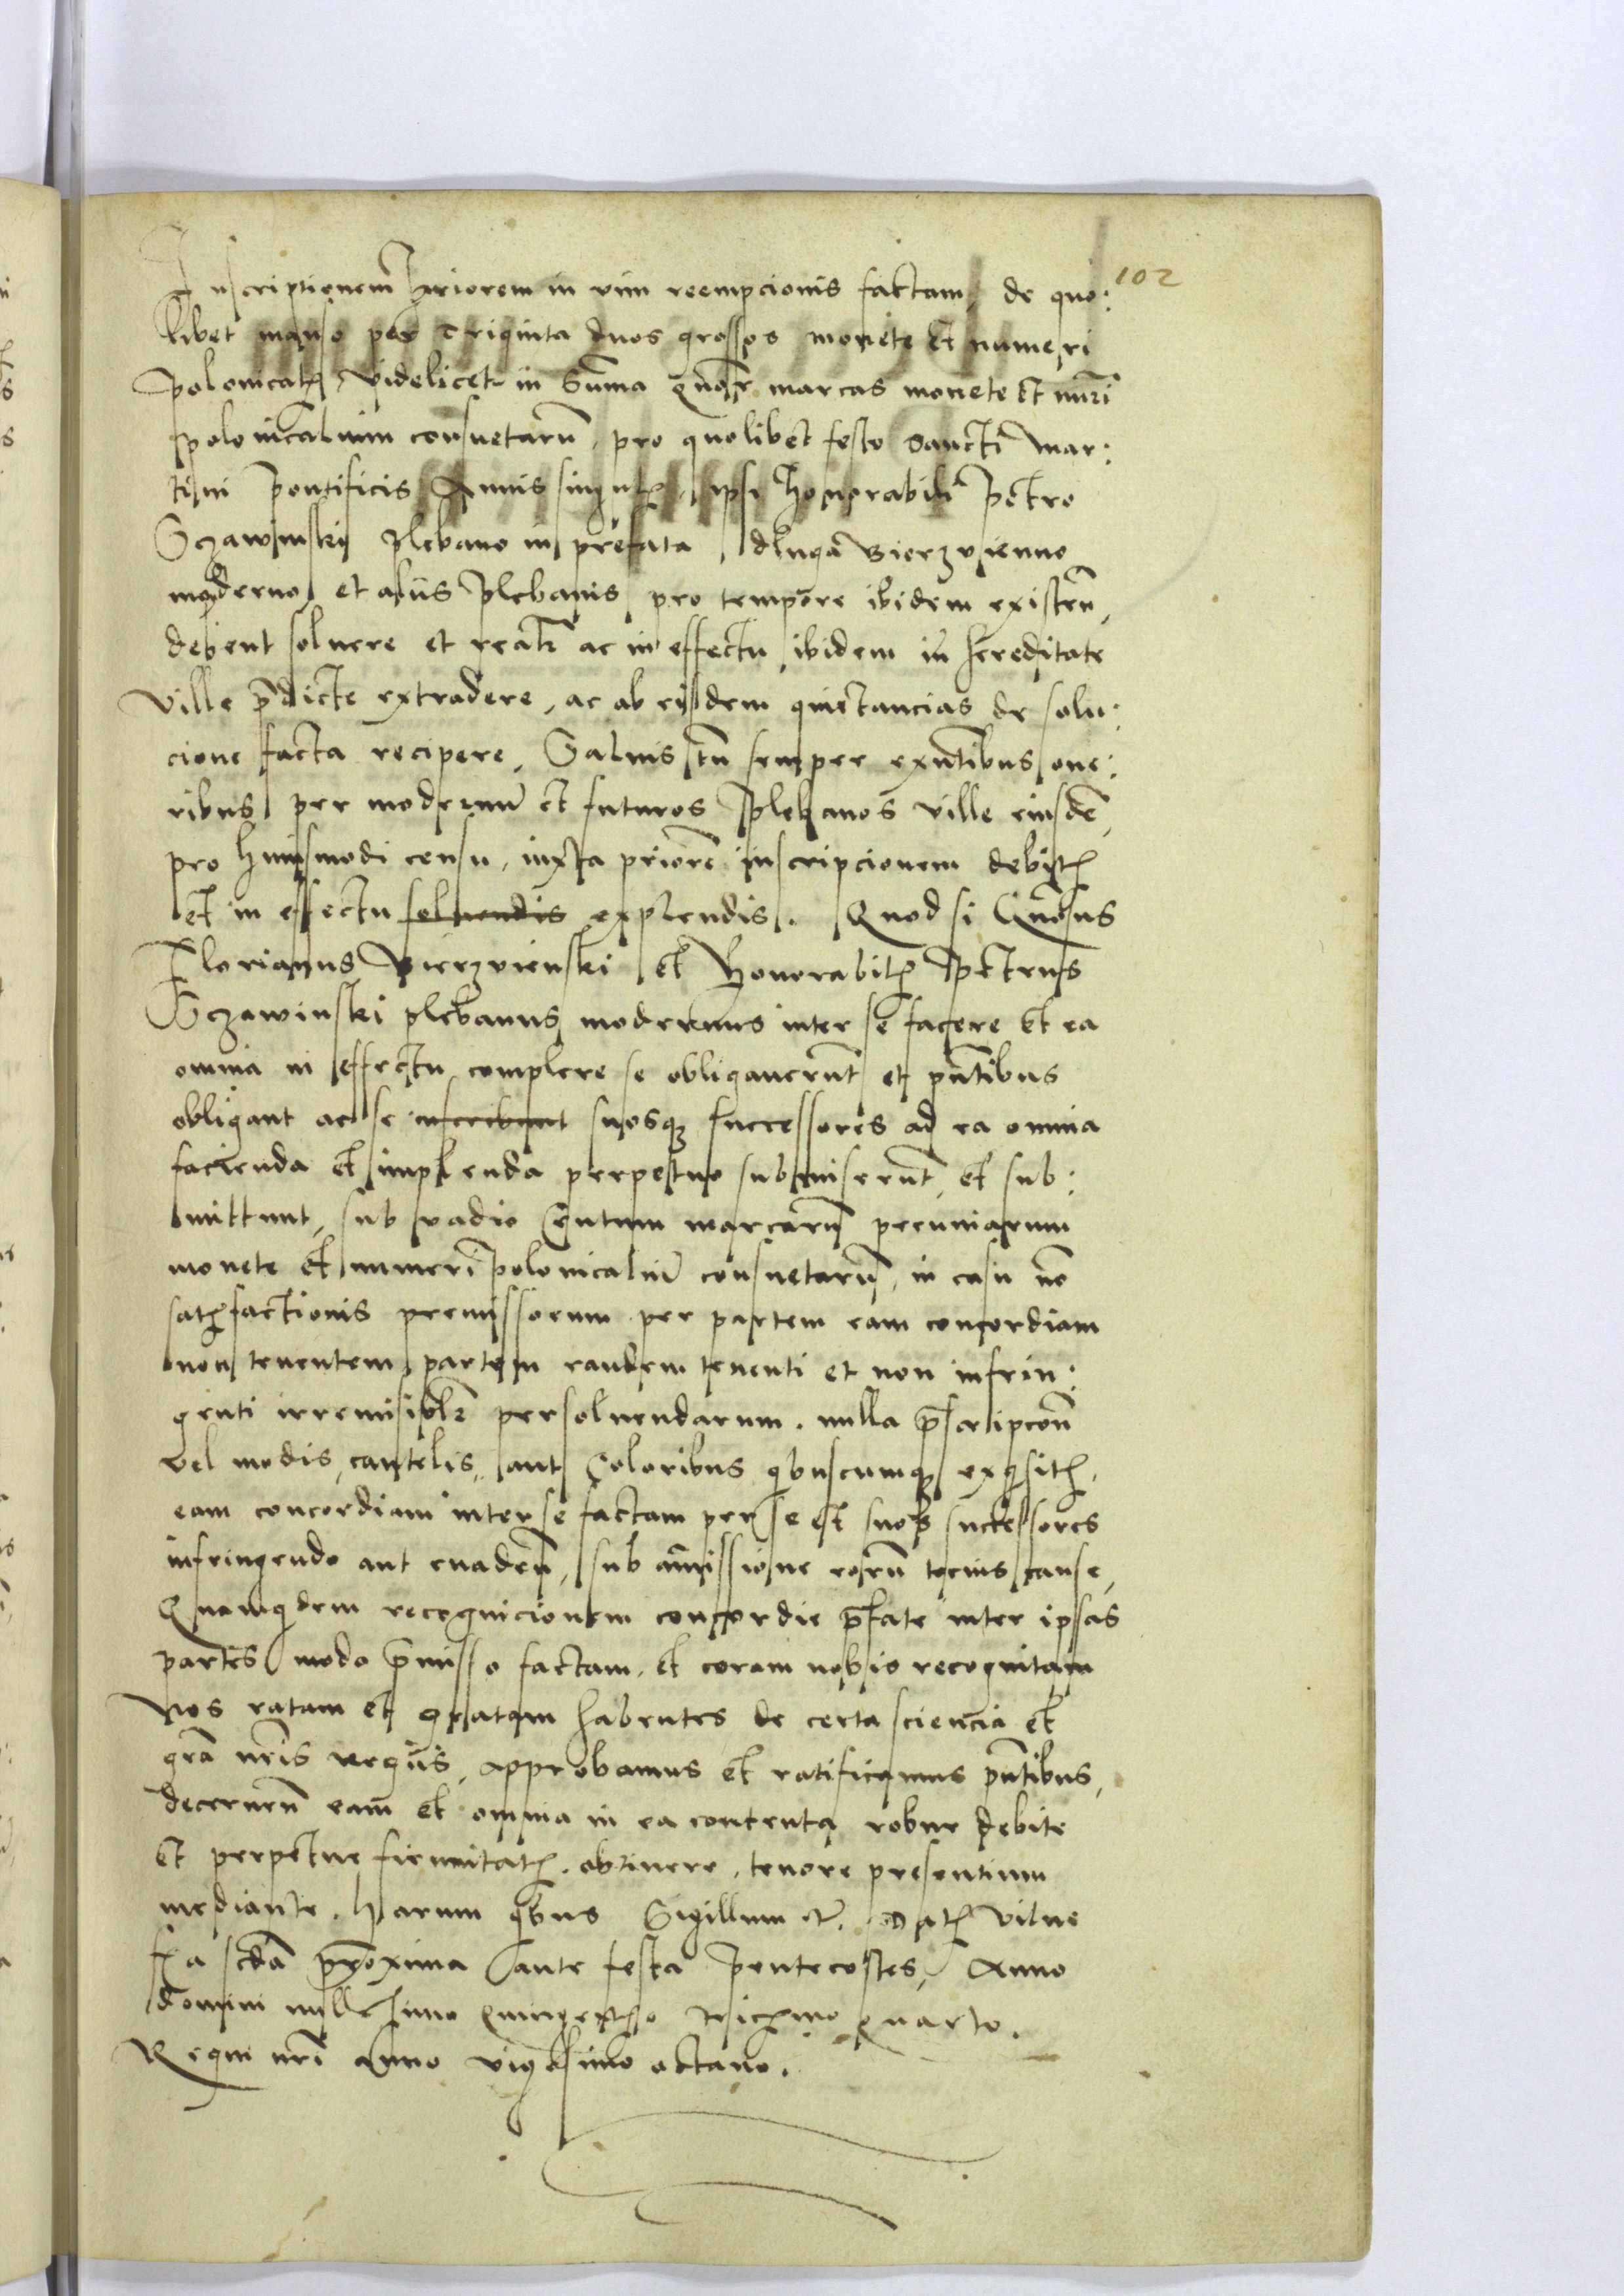 102
Inscriptionem priorem in vim reempcionis factam, de quo:
libet manso per triginta duos grossos monete et numeri
polonicalium, videlicet in Suma quatuor marcas monete et nuri
polonicalium consuetaru, pro quolibet festo Sancti Mar:
tini pontificis Annis singulis, ipsi honorabili Petro
Sczawinskij plebano in prefata dluga Bierzvienno
moderno, et aliis plebanis pro tempore ibidem existen,
debent soluere et realr ac in effectu ibidem in hereditate
ville predicte extradere, ac ab eisdem quictancias de solu:
cione facta recipere, Saluis tn semper existentibus one:
ribus per modernu et futuros plebanos ville eiusde,
pro huiusmodi censu, iuxta priore inscripcionem debitis
et in effectu soluendis explendis. Quod si Gnosus
Florianus Bierzvienski et honorabilis Petrus
Sczawinski plebanus modernus inter se facere et ea
omnia in effectu complere se obligauerunt et pntibus
obligant ac se inscribunt suosque successores ad ea omnia
facienda et implenda perpetuo submiserunt, et sub:
mittunt, sub vadio Centum marcaru pecuniarum
monete et numeri polonicaliu consuetaru, in casu no
satisfactionis premissorum per partem eam concordiam
non tenentem partem eandem tenenti et non infrin:
genti irremisiblr persoluendarum. nulla prescripcon
vel modis, cautelis, aut Coloribus qbuscumque exqsitis,
eam concordiam inter se factam per se et suos successores
infringendo aut euaden, sub amissione eoru tocius cause,
Quamqdem recognicionem concordie prefate inter ipsas
partes modo premisso factam, et coram nobis recognitam
Nos ratam et gratam habentes de certa sciencia et
gra nris regiis, approbamus et ratificamus pntibus,
decernen eam et omnia in ea contenta robur debite
et perpetue firmitatis obtinere, tenore presentium
mediante. Harum qbus Sigillum etc. Datis Vilne
feria scda proxima ante festa Pentecostes, Anno
domini millesimo Quingentesimo tricesimo quarto.
Regni nri Anno vigesimo octauo.